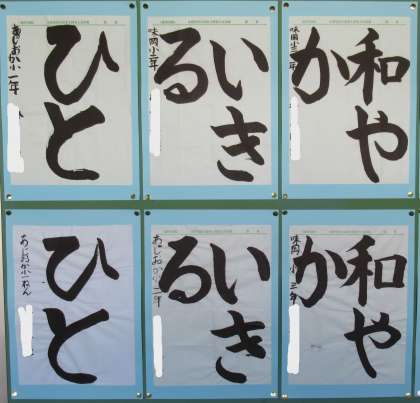 ひと
あじおか小一年
いき
る
味岡小二年
和や
か
味岡小三年
ひと
あじおか小一ねん
いき
る
あじおか小二年
和や
か
味岡小三年